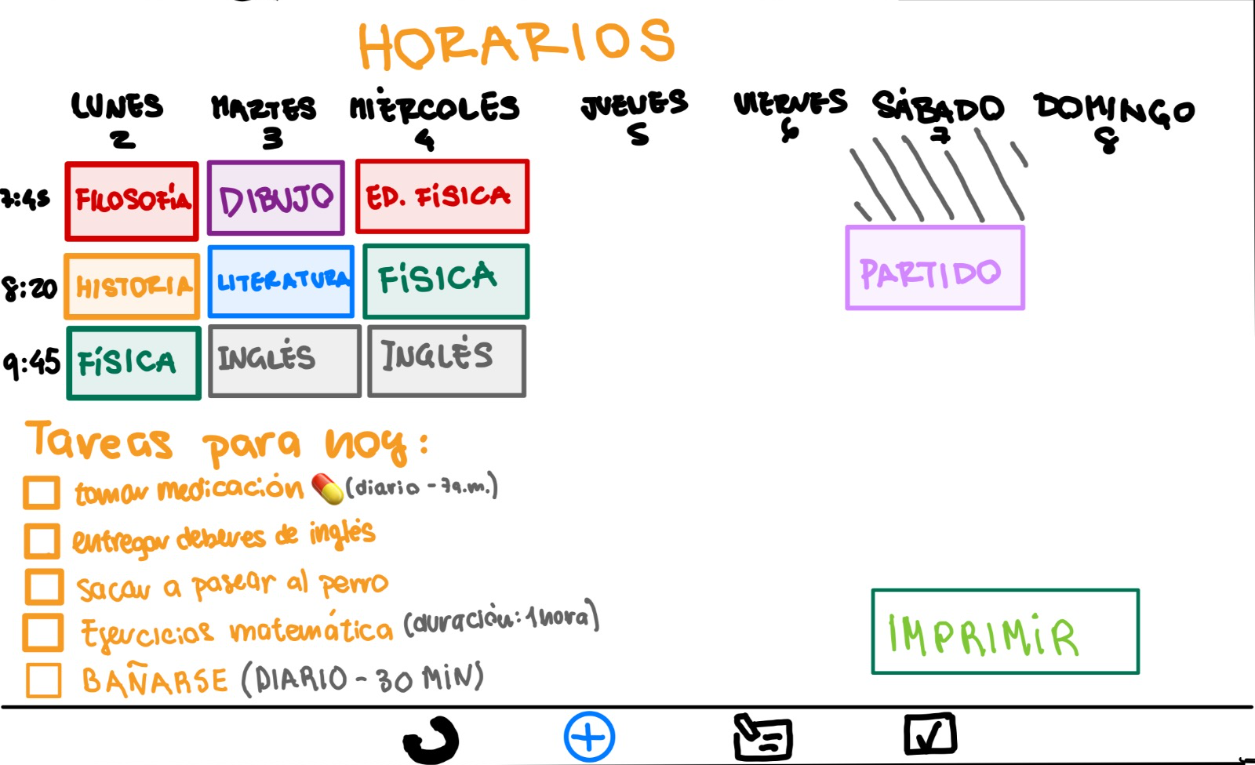 HORARIOS
LUNES MARTES MIÉRCOLES JUEVES VIERNES SÁBADO DOMINGO
2 3 4 5 6 7 8
7:45 FILOSOFÍA DIBUJO ED. FÍSICA
8:20 HISTORIA LITERATURA FÍSICA PARTIDO
9:45 FÍSICA INGLÉS INGLÉS
Tareas para hoy:
tomar medicación (diario - 7a.m.)
entregar deberes de inglés
sacar a pasear al perro
Ejercicios matemática (duración: 1 hora)
BAÑARSE (DIARIO - 30 MIN)
IMPRIMIR